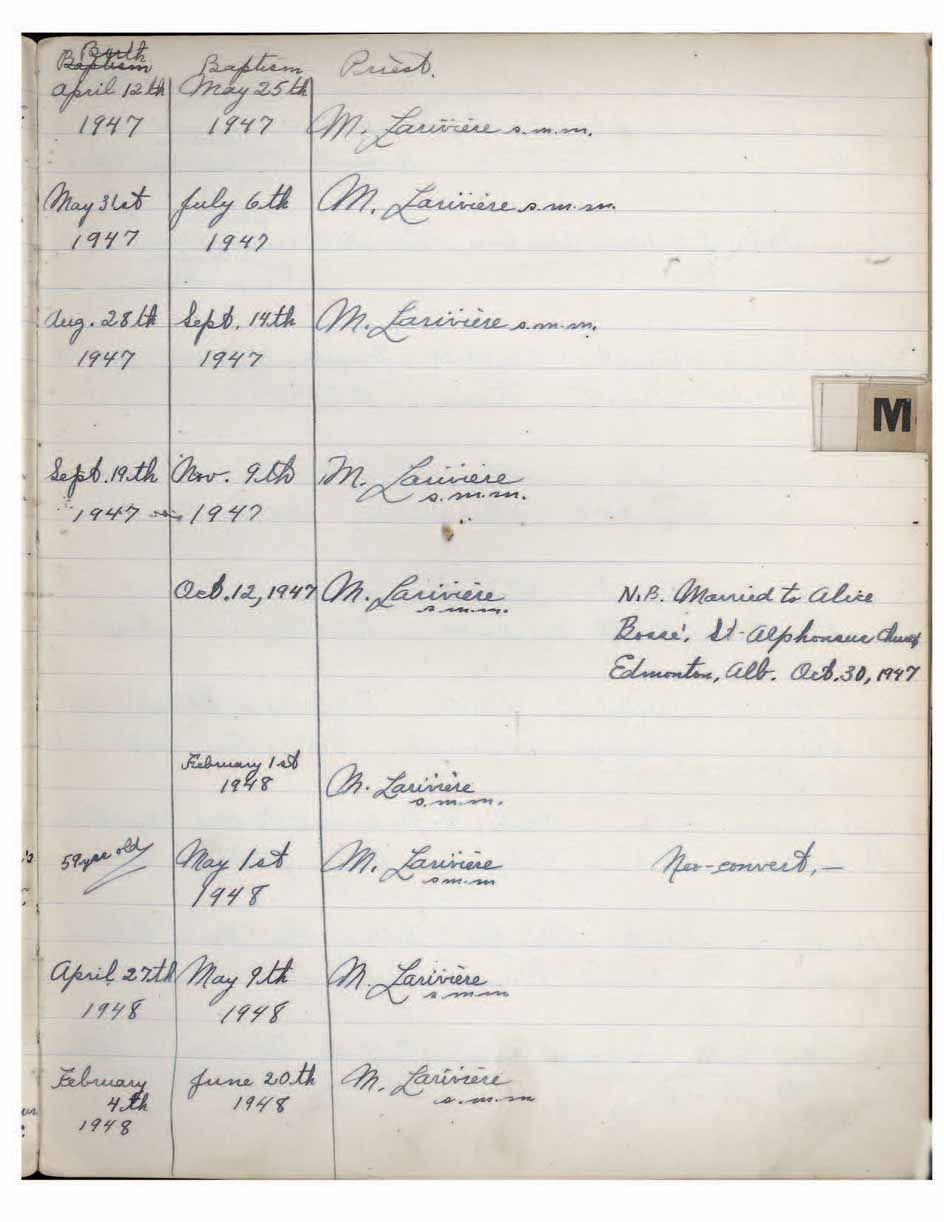 Birth
Baptism Baptism Priest.
April 12th May 25th
1947 1947 M. Larivière s.m.m.
May 31st July 6th M. Larivière s.m.m.
1947 1947
Aug. 28th Sept. 14th M. Larivière s.m.m.
1947 1947
M
Sept. 19th Nov. 9th M. Larivière
s.m.m.
1947 1947
Oct. 12, 1947 M. Larivière N.B. Married to Alice
s.m.m.
Bossé, St-Alphonsus
Edmonton, Alb. Oct. 30, 1947
February 1st
1948 M. Larivière
s.m.m.
59 yrs old May 1st M. Larivière Neo-convert.—
s.m.m
1948
April 27th May 9th M. Larivière
s.m.m
1948 1948
February June 20th M. Larivière
4th 1948 s.m.m
1948